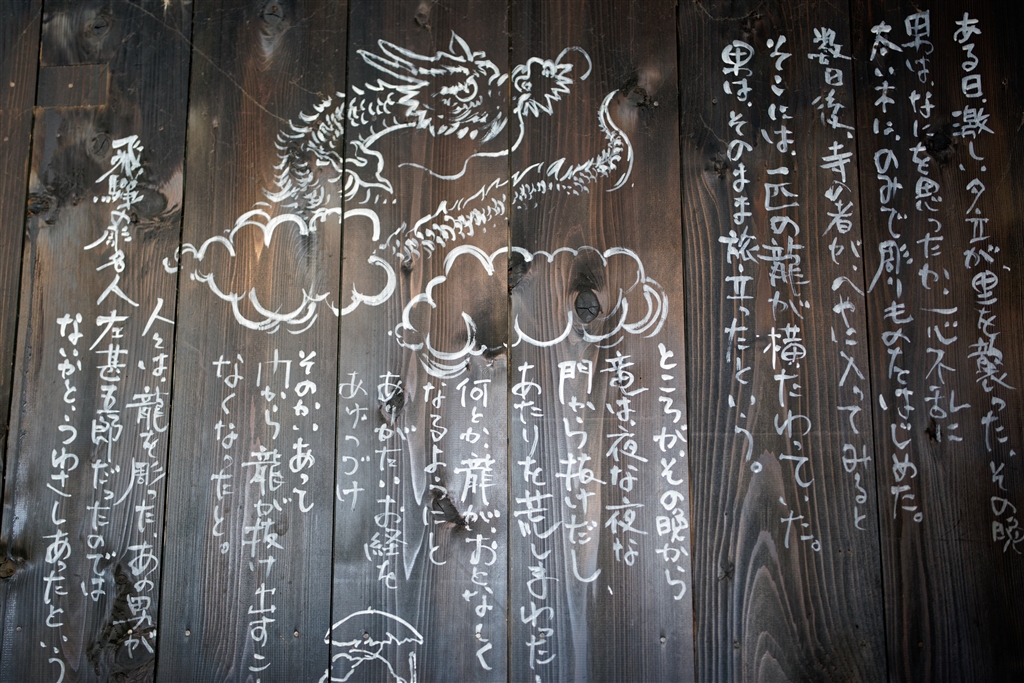 ある日、激しい夕立が里を襲った、その晩
男はなにを思ったか、一心不乱に
太い木にのみで彫りものをはじめた。
数日後、寺の者がへやに入ってみると
そこには、一匹の龍が横たわっていた。
男は、そのまま旅立ったという。
ところがその晩から
竜は夜な夜な、
門から抜けだし
あたりを荒しまわった
何とか、龍がおとなしく
なるようにと
ありがたいお経を
あげつづけ
そのかいあって
門から龍が抜け出すこ
なくなったと。
人々は、龍を彫ったあの男が
飛騨の彫もの人左甚五郎だったのでは
ないかとうわさしあったという